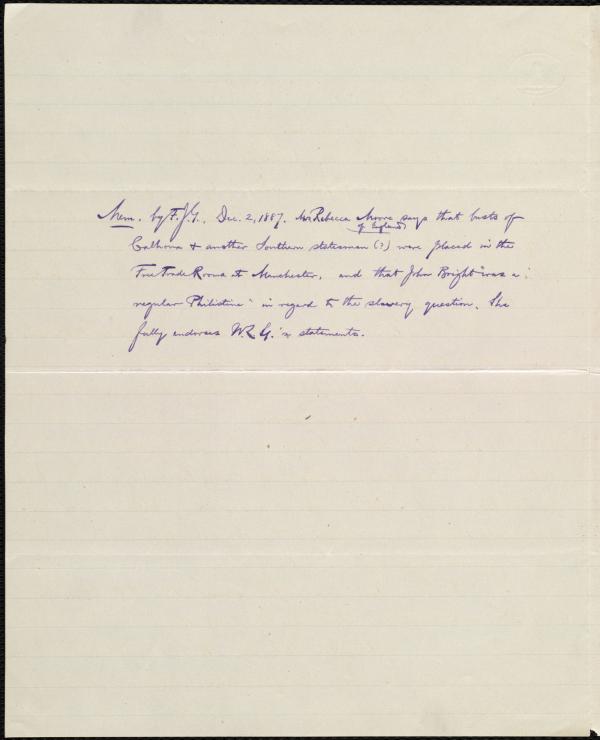 Mem. by F.J.G., Dec. 2, 1887. Mrs Rebecca Moore says that busts of
(of England)
Calhoun & another Southern statesman (?) were placed in the
Free Trade Rooms at Manchester, and that John Bright "was a
regular Philistine" in regard to the slavery question. She
fully endorses W.L.G.'s statements.